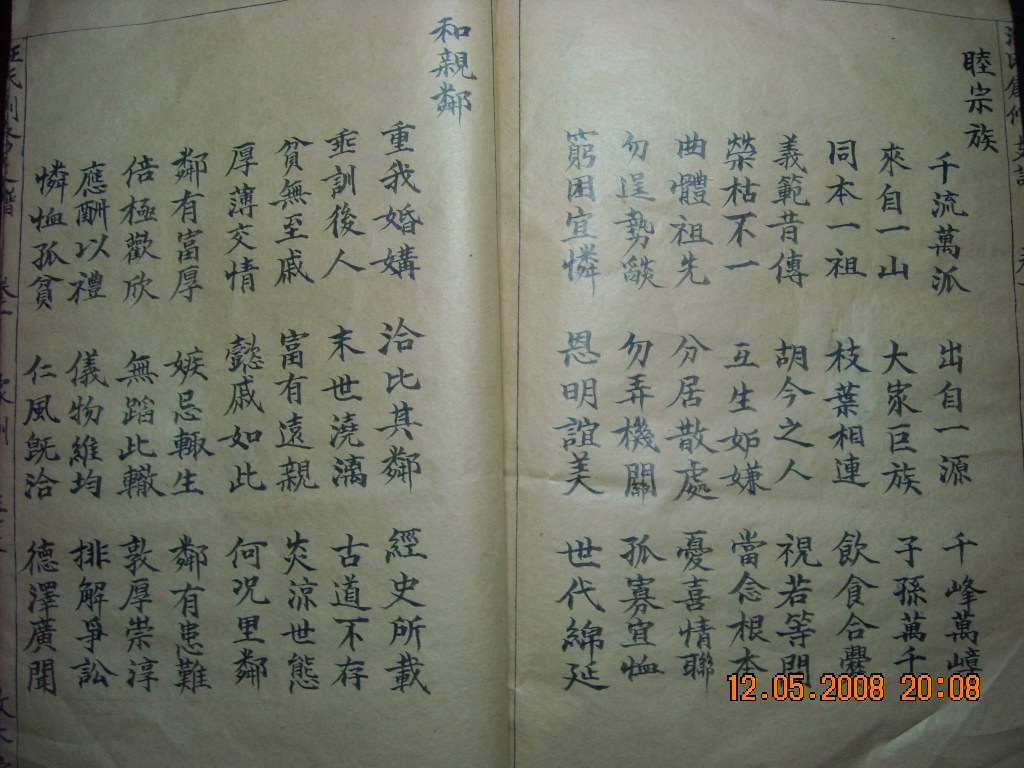 睦宗族
千流萬派 出自一源 千峰萬嶂
來自一山 大家巨族 子孫萬千
同本一祖 枝葉相連 飲食合爨
義範昔傳 胡今之人 視若等閒
榮枯不一 互生妒嫌 當念根本
曲體祖先 分居散處 憂喜情聯
勿逞勢燄 勿弄機關 孤寡宜恤
窮困宜憐 恩明誼美 世代綿延
和親鄰
重我婚媾 洽比其鄰 經史所載
垂訓後人 末世澆漓 古道不存
貧無至戚 富有遠親 炎涼世態
厚薄交情 懿戚如此 何況里鄰
鄰有富厚 嫉忌輒生 鄰有患難
倍極歡欣 無蹈此轍 敦厚崇淳
應酬以禮 儀物維均 排解爭訟
憐恤孤貧 仁風既洽 德澤廣聞
12.05.2008 20:08